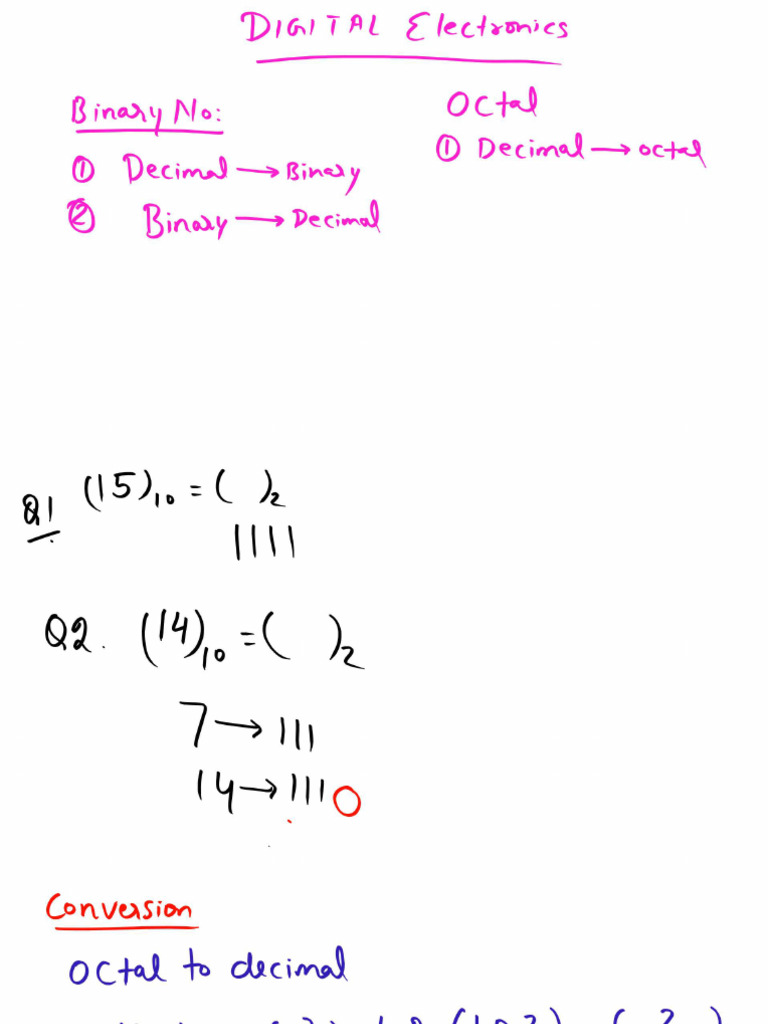 DIGITAL Electronics
Binary No:
① Decimal → Binary
② Binary → Decimal
Octal
① Decimal → octal
Q1 (15)₁₀ = ( )₂
1111
Q2. (14)₁₀ = ( )₂
7 → 111
14 → 1110
Conversion
Octal to decimal